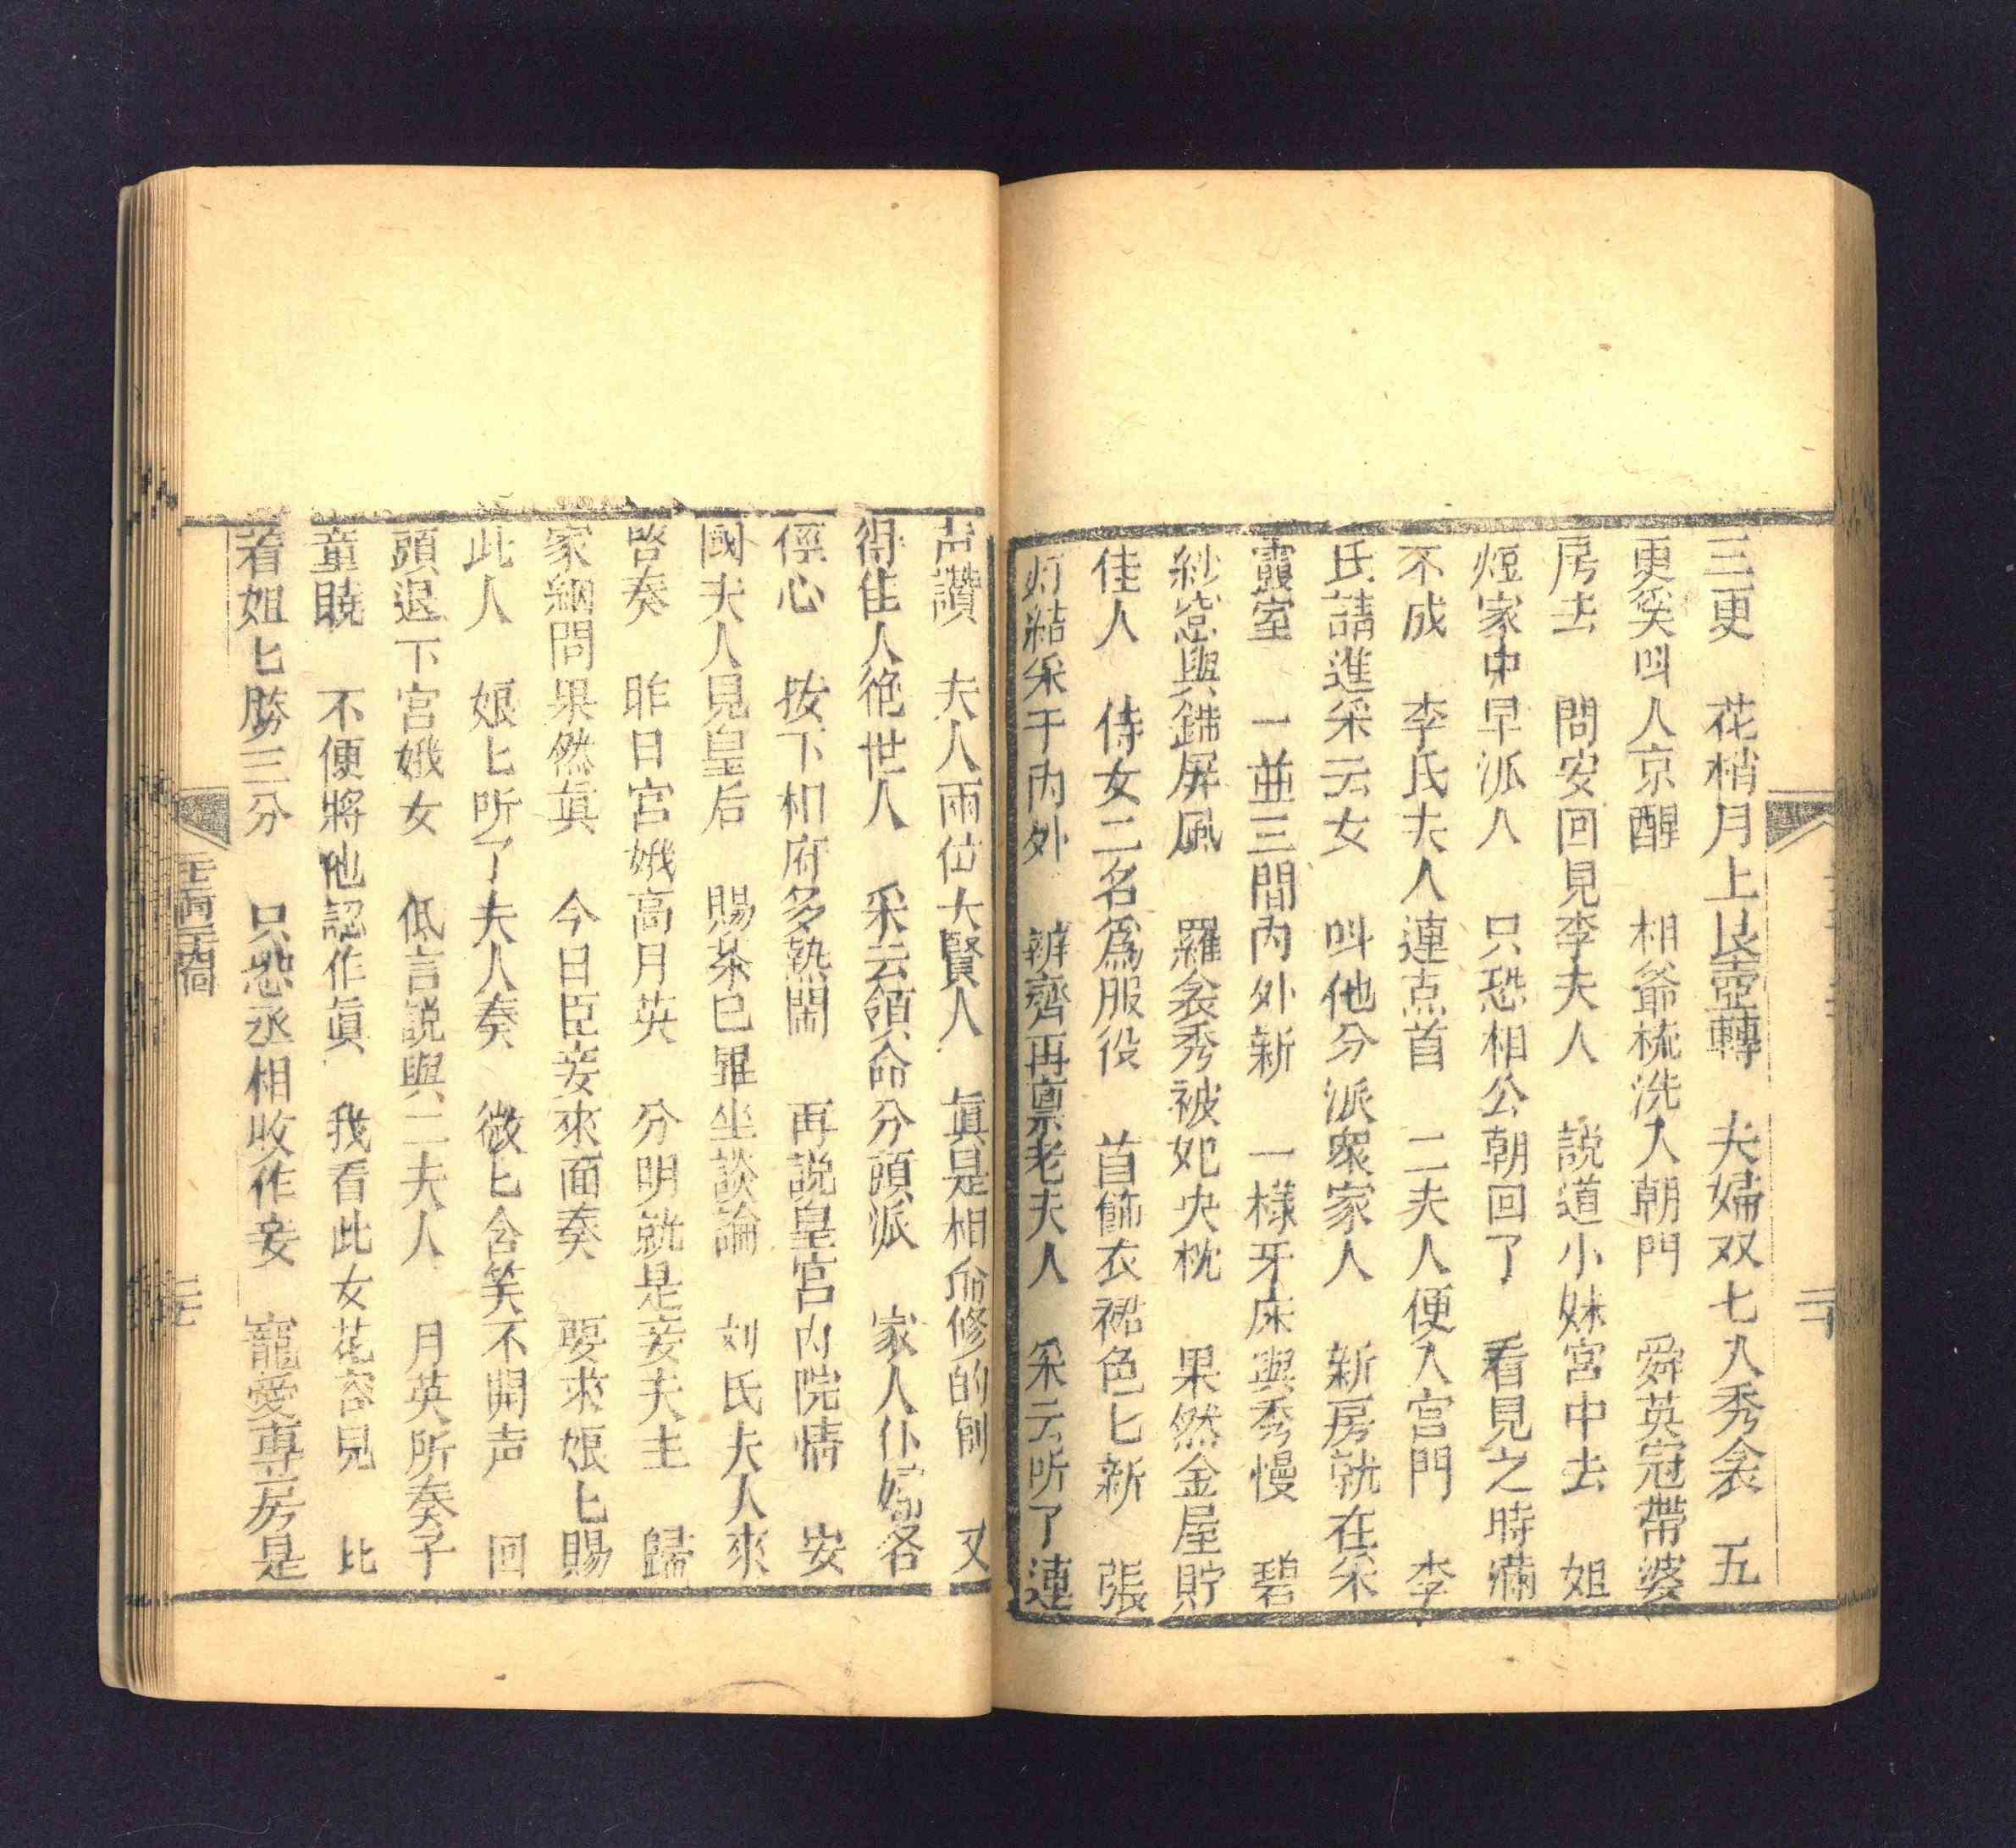 三更　花梢月上艮壺轉　夫婦双七入秀衾　五
更矣叫人京醒　相爺梳洗入朝門　舜英冠帶婆
房去　問安回見李夫人　説道小妹宮中去　姐
煙家中早派人　只恐相公朝回了　看見之時瞞
不成　李氏夫人連点首　二夫人便入宮門　李
氏請進采云女　叫他分派衆家人　新房就在采
霞室　一並三間内外新　一樣牙床與秀幔　碧
紗窓與錦屏風　羅衾秀被夗央枕　果然金屋貯
佳人　侍女二名爲服役　首飾衣裙色匕新　張
灯結采于内外　辦齊再禀老夫人　采云听了連
声讚　夫人兩位大賢人　眞是相爺修的到　又
得佳人绝世人　采云領命分頭派　家人仆婦各
心　按下相府多熱閙　再説皇宮内院情　安
國夫人見皇后　賜茶已畢坐談論　刘氏夫人來
啓奏　昨日宮娥高月英　分明就是妾夫主　歸
家細問果然眞　今日臣妾來面奏　要求娘匕賜
此人　娘匕听了夫人奏　微匕含笑不開声　回
頭退下宮娥女　低言説與二夫人　月英所奏子
童曉　不便將他認作眞　我看此女花容皃　比
着姐匕勝三分　只恐丞相收作妾　寵愛專房是